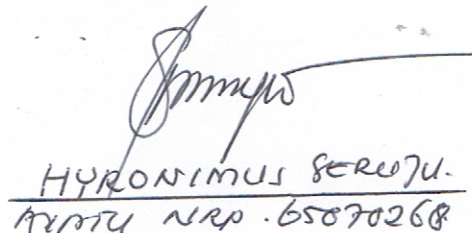 HYRONIMUS SERUJU.
AIPTU NRP. 65070268